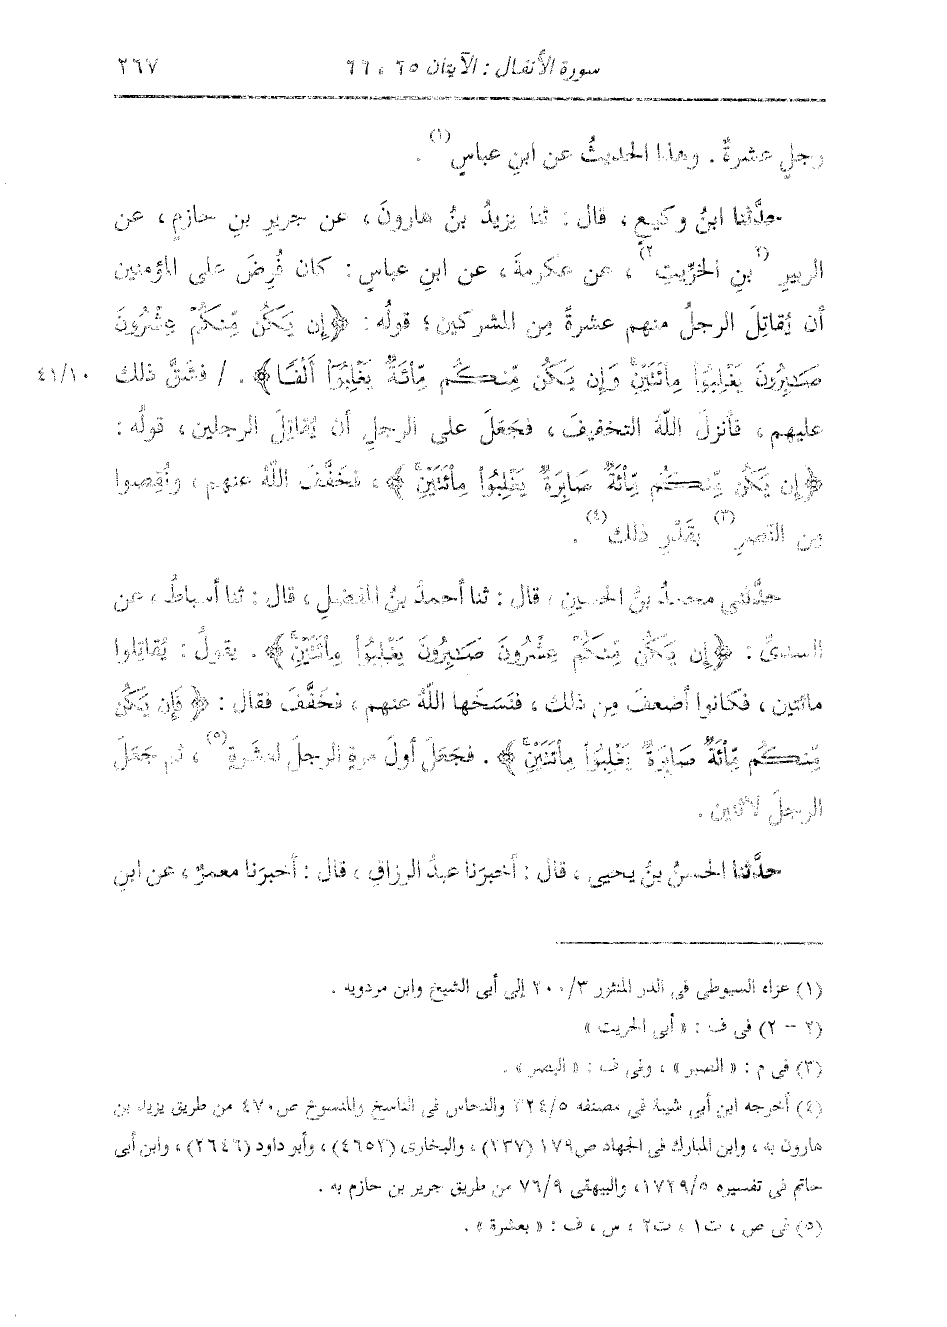 سورة الأنفال : الآيتان ٦٥ ، ٦٦ ٢٦٧
رجلٍ عشرةٌ . وهذا الحديثُ عن ابنِ عباسٍ(١) .
حدَّثنا ابنُ وكيعٍ ، قال : ثنا يزيدُ بنُ هارونَ ، عن جريرِ بنِ حازمٍ ، عن
الزبيرِ (٢بنِ الخرِّيتِ٢) ، عن عكرمةَ ، عن ابنِ عباسٍ : كان فُرِضَ على المؤمنين
أن يُقاتِلَ الرجلُ منهم عشرةً مِن المشركين ؛ قولُه : ﴿ إِن يَكُن مِّنكُمْ عِشْرُونَ
صَٰبِرُونَ يَغْلِبُوا۟ مِا۟ئَتَيْنِ ۚ وَإِن يَكُن مِّنكُم مِّا۟ئَةٌ يَغْلِبُوٓا۟ أَلْفًا ﴾ . / فشَقَّ ذلك ٤١/١٠
عليهم ، فأنزلَ اللّهُ التخفيفَ ، فجَعَلَ على الرجلِ أن يُقاتِلَ الرجلين ، قولُه :
﴿ إِن يَكُن مِّنكُم مِّا۟ئَةٌ صَابِرَةٌ يَغْلِبُوا۟ مِا۟ئَتَيْنِ ۚ ﴾ ، فخَفَّفَ اللّهُ عنهم ، ونُقِصوا
مِن النصرِ(٣) بقَدْرِ ذلك(٤) .
حدَّثنى محمدُ بنُ الحسينِ ، قال : ثنا أحمدُ بنُ المفضلِ ، قال : ثنا أسباطُ ، عن
السدىِّ : ﴿ إِن يَكُن مِّنكُمْ عِشْرُونَ صَٰبِرُونَ يَغْلِبُوا۟ مِا۟ئَتَيْنِ ۚ ﴾ . يقولُ : يُقاتِلوا
مائتين ، فكانوا أضعفَ مِن ذلك ، فنَسَخَها اللّهُ عنهم ، فخَفَّفَ فقال : ﴿ فَإِن يَكُن
مِّنكُم مِّا۟ئَةٌ صَابِرَةٌ يَغْلِبُوا۟ مِا۟ئَتَيْنِ ۚ ﴾ . فجَعَلَ أولَ مرةٍ الرجلَ لعشَرةٍ(٥) ، ثم جَعَلَ
الرجلَ لاثنين .
حدَّثنا الحسنُ بنُ يحيى ، قال : أخبرَنا عبدُ الرزاقِ ، قال : أخبرَنا معمرٌ ، عن ابنِ
(١) عزاه السيوطى فى الدر المنثور ٢٠٠/٣ إلى أبى الشيخ وابن مردويه .
(٢ - ٢) فى ف : « أبى الحريت »
(٣) فى م : « الصبر » ، وفى ف : « البصر » .
(٤) أخرجه ابن أبى شيبة فى مصنفه ٣٢٤/٥ والنحاس فى الناسخ والمنسوخ ص ٤٧٠ من طريق يزيد بن
هارون به ، وابن المبارك فى الجهاد ص ١٧٩ (٢٣٧) ، والبخارى (٤٦٥٣) ، وأبو داود (٢٦٤٦) ، وابن أبى
حاتم فى تفسيره ١٧٢٩/٥ ، والبيهقى ٧٦/٩ من طريق جرير بن حازم به .
(٥) فى ص ، ت١ ، ت٢ ، س ، ف : « بعشرة » .